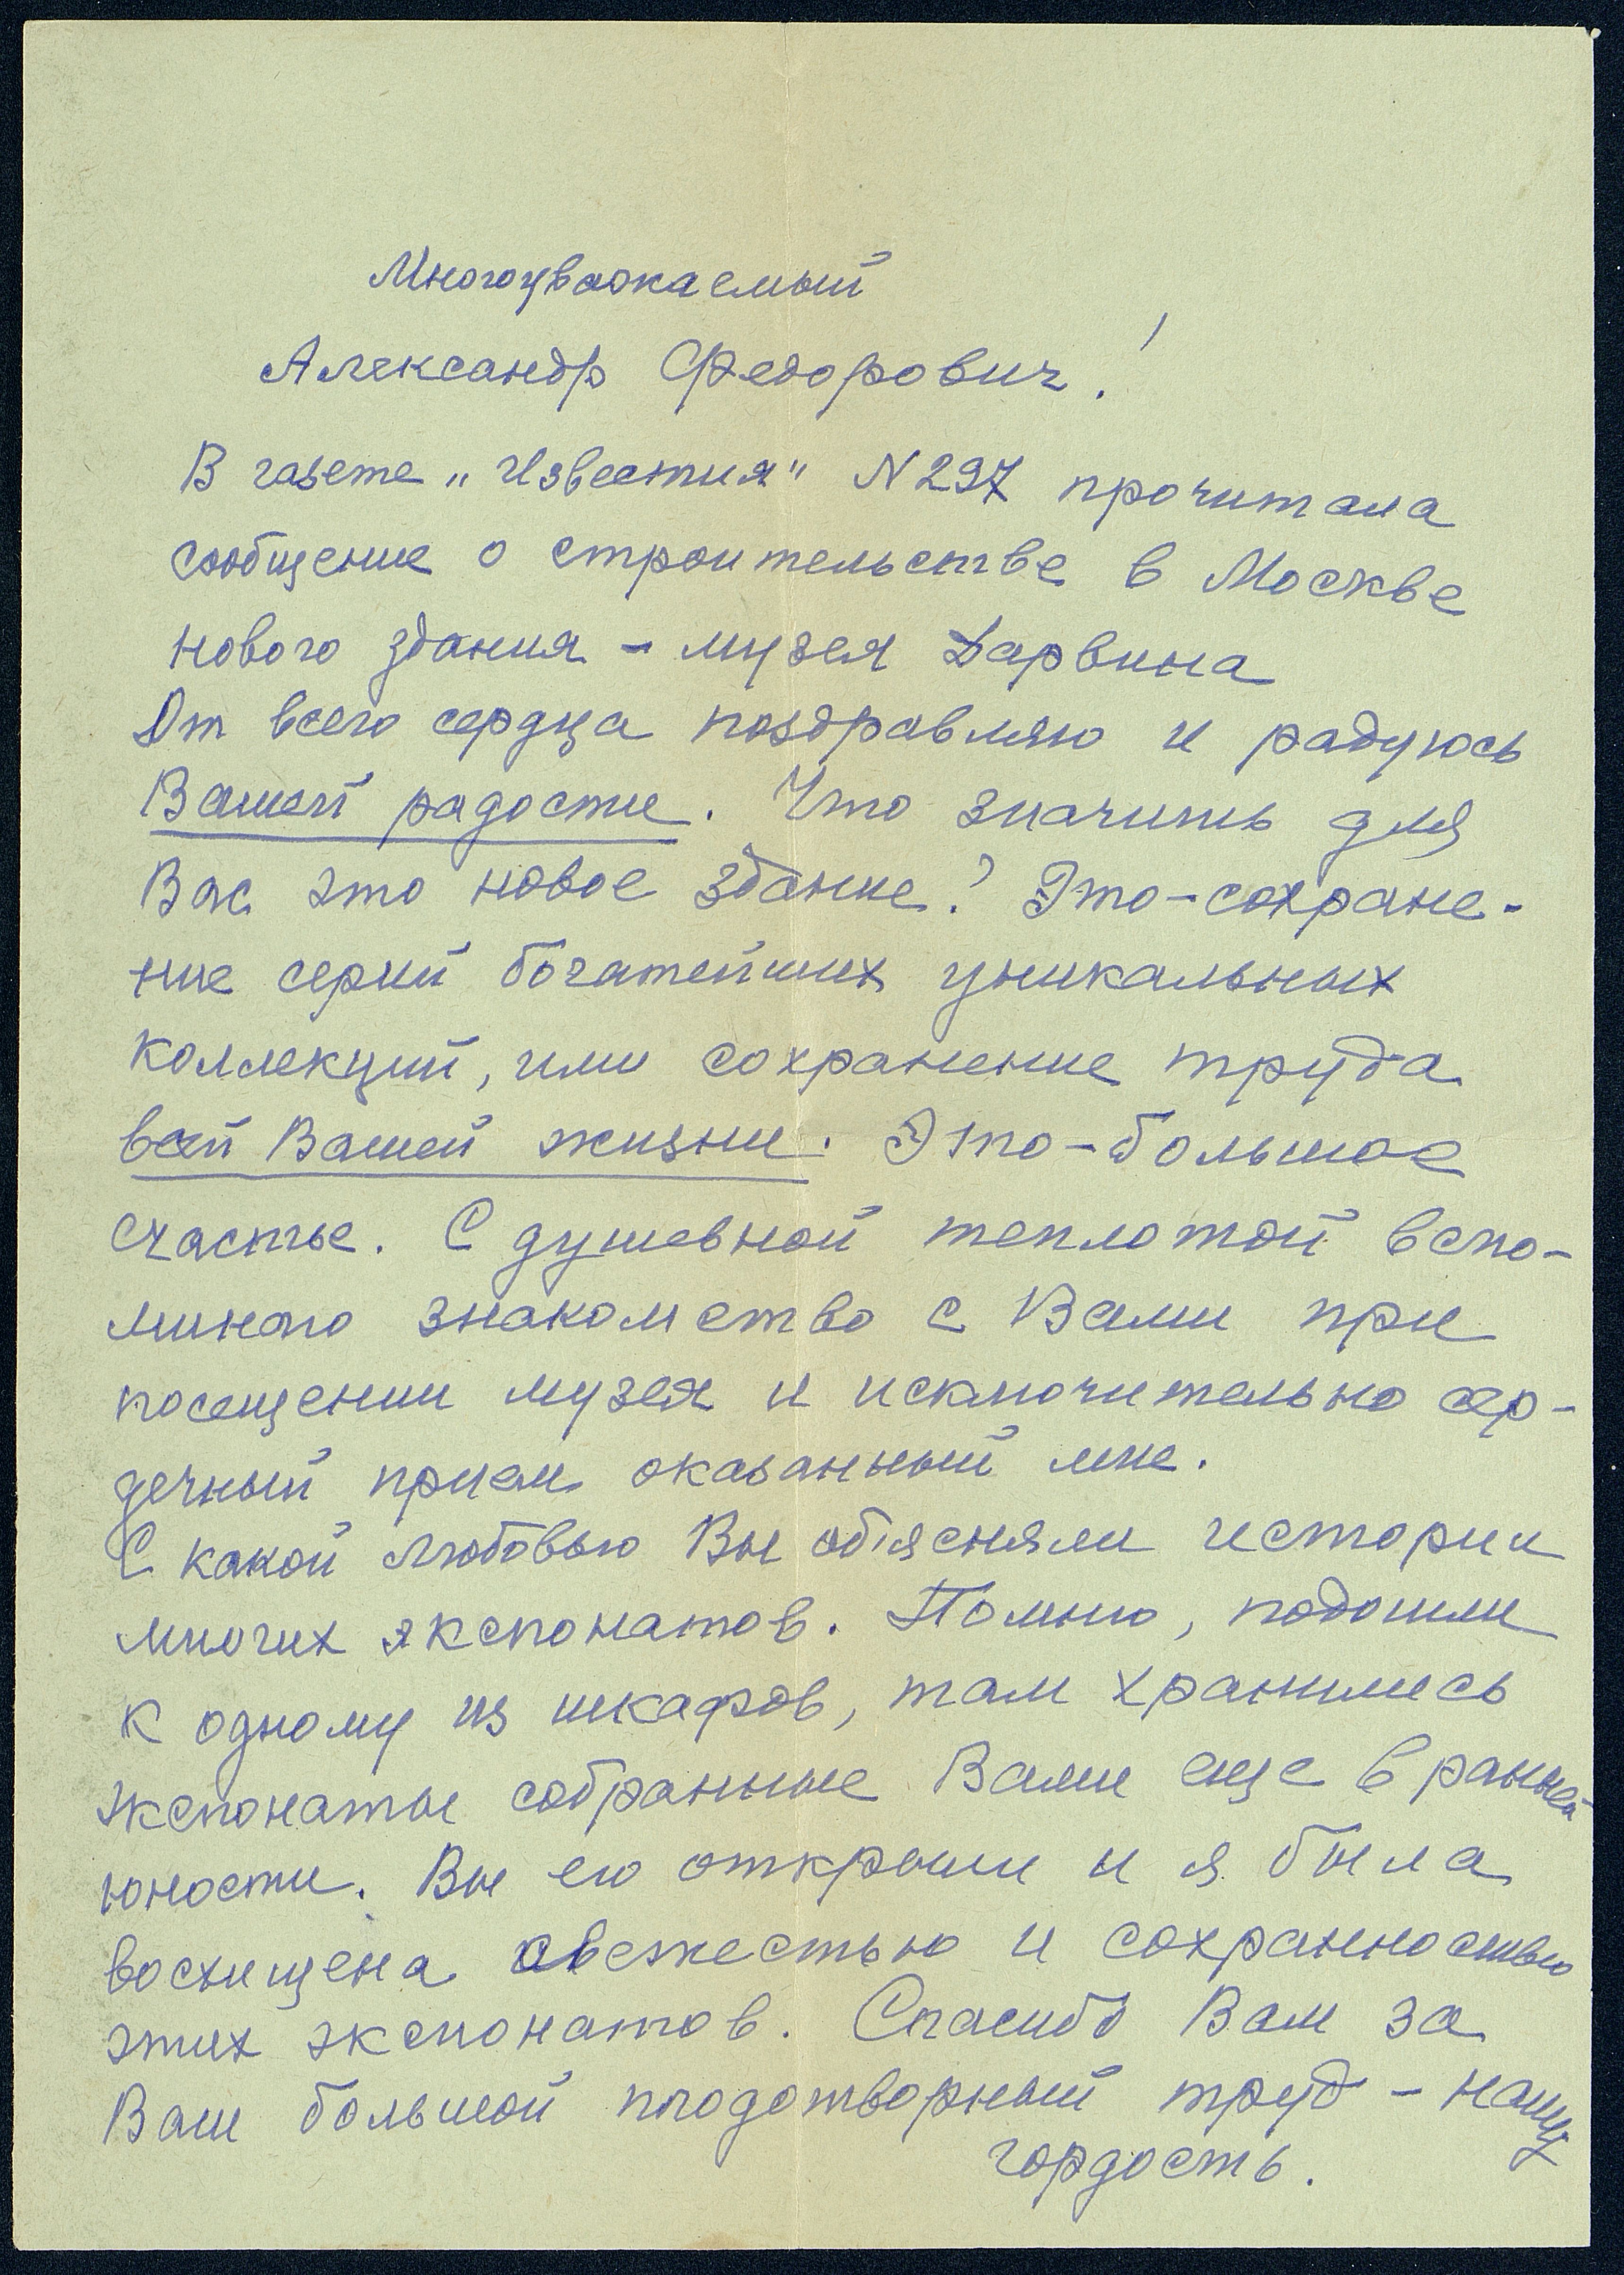 Многоуважаемый
Александр Федорович!
В газете „Известия" N 297 прочитала
сообщение о строительстве в Москве
нового здания – музея Дарвина
От всего сердца поздравляю и радуюсь
Вашей радости. Что значить для
Вас это новое здание? Это – сохране-
ние серий богатейших уникальных
коллекций, или сохранение труда
всей Вашей жизни. Это – большое
счастье. С душевной теплотой вспо-
минаю знакомство с Вами при
посещении музея и исключительно сер-
дечный прием оказанный мне.
С какой любовью Вы об'ясняли истории
многих экспонатов. Помню, подошли
к одному из шкафов, там хранились
экспонаты собранные Вами еще в ранней
юности. Вы его открыли и я была
восхищена свежестью и сохранностью
этих экспонатов. Спасибо Вам за
Ваш большой плодотворный труд – нашу
гордость.